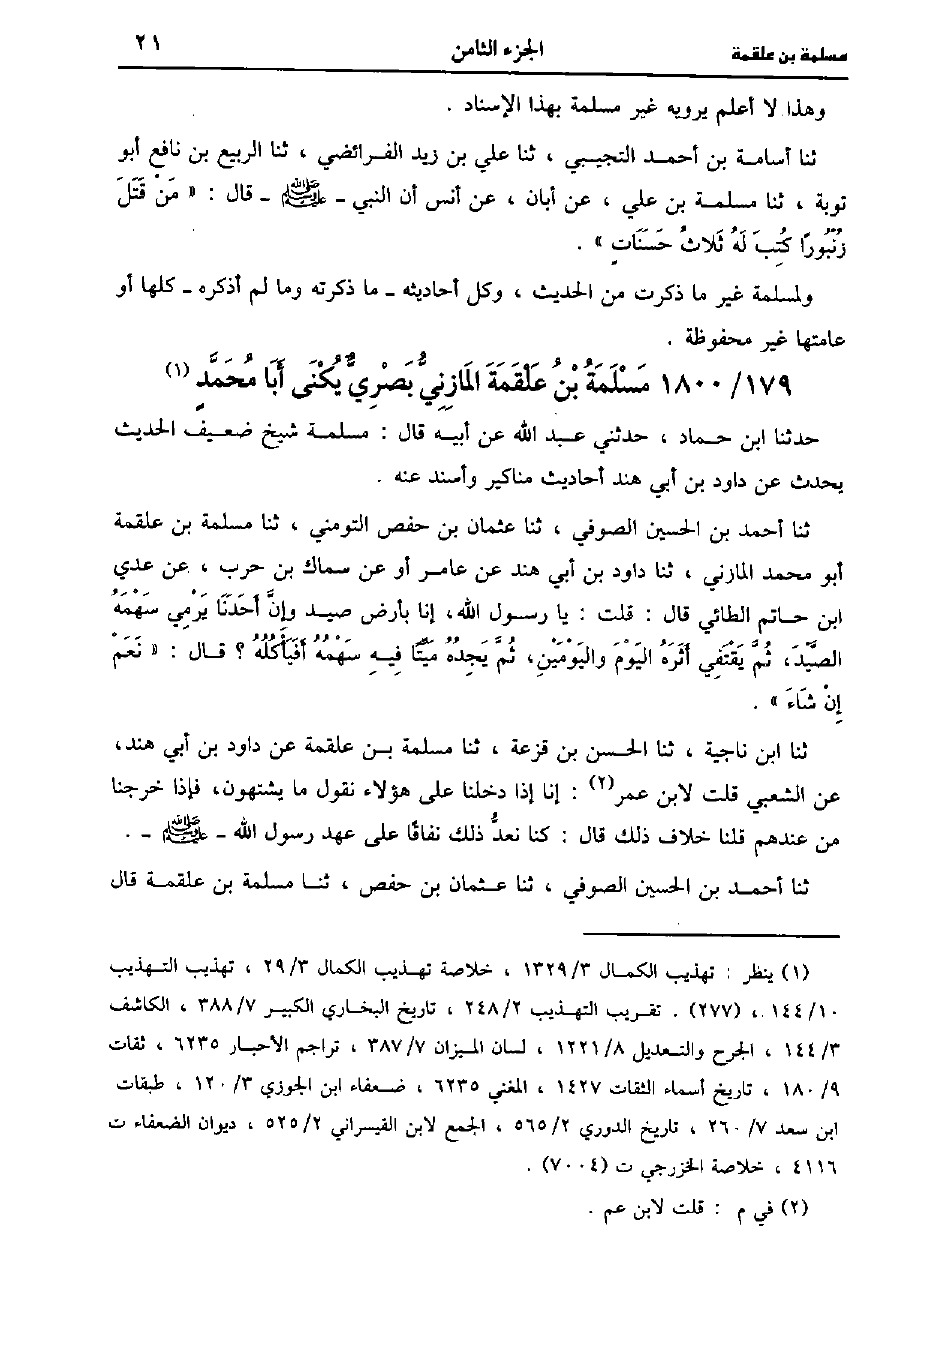 مسلمة بن علقمة الجزء الثامن ٢١
وهذا لا أعلم يرويه غير مسلمة بهذا الإسناد .
ثنا أسامة بن أحمد التجيبي ، ثنا علي بن زيد الفرائضي ، ثنا الربيع بن نافع أبو
توبة ، ثنا مسلمة بن علي ، عن أبان ، عن أنس أن النبي - ﷺ - قال : « مَنْ قَتَلَ
زُنْبُورًا كُتِبَ لَهُ ثَلاثُ حَسَنَاتٍ » .
ولمسلمة غير ما ذكرت من الحديث ، وكل أحاديثه - ما ذكرته وما لم أذكره - كلها أو
عامتها غير محفوظة .
١٨٠٠/١٧٩ مَسْلَمَةُ بْنُ عَلْقَمَةَ المَازِنِيُّ بَصْرِيٌّ يُكْنَى أَبَا مُحَمَّدٍ (١)
حدثنا ابن حماد ، حدثني عبد الله عن أبيه قال : مسلمة شيخ ضعيف الحديث
يحدث عن داود بن أبي هند أحاديث مناكير وأسند عنه .
ثنا أحمد بن الحسين الصوفي ، ثنا عثمان بن حفص التومني ، ثنا مسلمة بن علقمة
أبو محمد المازني ، ثنا داود بن أبي هند عن عامر أو عن سماك بن حرب ، عن عدي
ابن حاتم الطائي قال : قلت : يا رسول الله، إنا بأرض صيد وإنَّ أَحَدَنَا يَرْمِي سَهْمَهُ
الصَّيْدَ، ثُمَّ يَقْتَفِي أَثَرَهُ اليَوْمَ واليَوْمَيْنِ، ثُمَّ يَجِدُهُ مَيِّتًا فِيهِ سَهْمُهُ أَفَيَأْكُلُهُ ؟ قال : « نَعَمْ
إِنْ شَاءَ » .
ثنا ابن ناجية ، ثنا الحسن بن قزعة ، ثنا مسلمة بن علقمة عن داود بن أبي هند،
عن الشعبي قلت لابن عمر(٢) : إنا إذا دخلنا على هؤلاء نقول ما يشتهون، فإذا خرجنا
من عندهم قلنا خلاف ذلك قال : كنا نعدُّ ذلك نفاقًا على عهد رسول الله - ﷺ - .
ثنا أحمد بن الحسين الصوفي ، ثنا عثمان بن حفص ، ثنا مسلمة بن علقمة قال
(١) ينظر : تهذيب الكمال ١٣٢٩/٣ ، خلاصة تهذيب الكمال ٢٩/٣ ، تهذيب التهذيب
١٤٤/١٠ ، (٢٧٧) . تقريب التهذيب ٢٤٨/٢ ، تاريخ البخاري الكبير ٣٨٨/٧ ، الكاشف
١٤٤/٣ ، الجرح والتعديل ١٢٢١/٨ ، لسان الميزان ٣٨٧/٧ ، تراجم الأحبار ٦٢٣٥ ، ثقات
١٨٠/٩ ، تاريخ أسماء الثقات ١٤٢٧ ، المغني ٦٢٣٥ ، ضعفاء ابن الجوزي ١٢٠/٣ ، طبقات
ابن سعد ٢٦٠/٧ ، تاريخ الدوري ٥٦٥/٢ ، الجمع لابن القيسراني ٥٢٥/٢ ، ديوان الضعفاء ت
٤١١٦ ، خلاصة الخزرجي ت (٧٠٠٤) .
(٢) في م : قلت لابن عم .